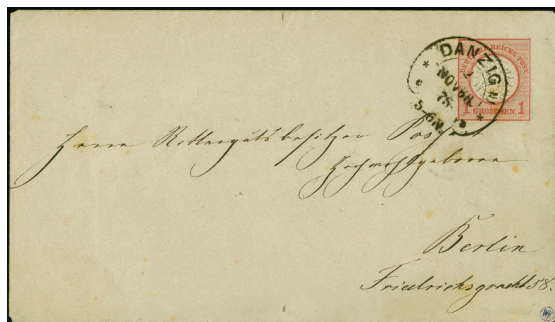 DANZIG
NOVBR
75
5-6N
DEUTSCHE REICHS-POST
1 GROSCHEN 1
Herrn Rittergutsbesitzer
Hochwohlgeboren
Berlin
Friedrichsgracht 58.